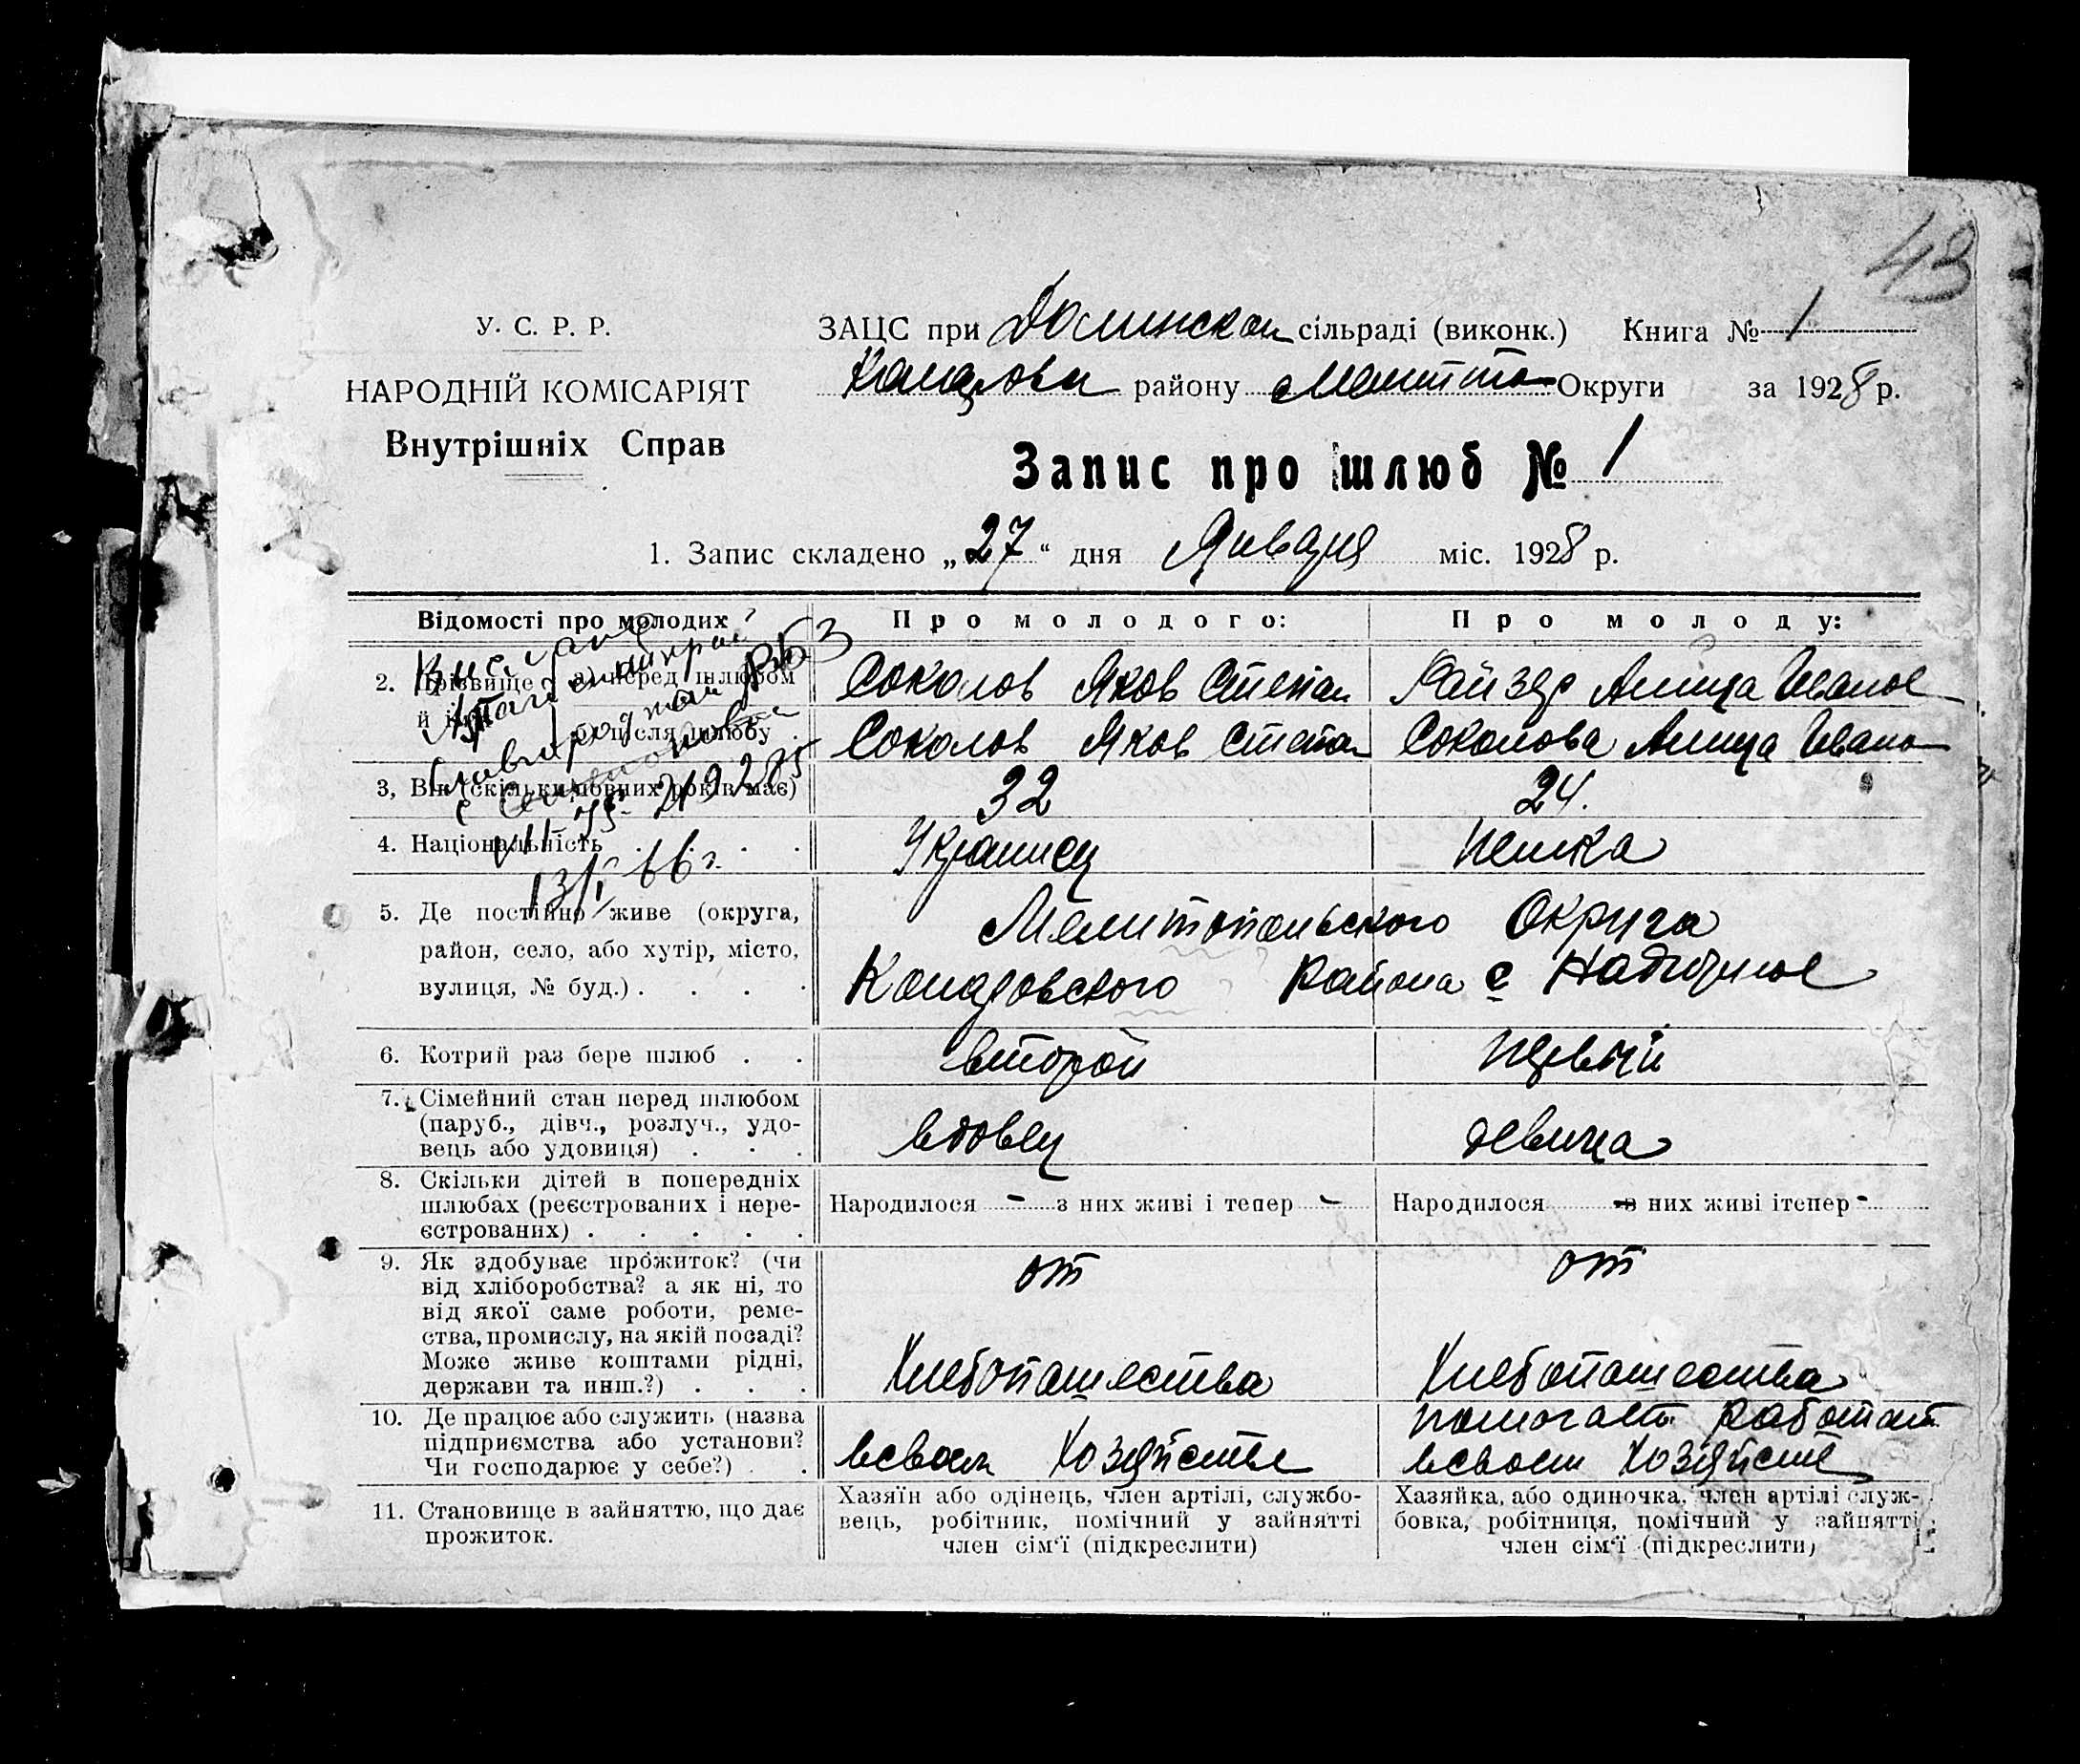 43
У. С. Р. Р.
НАРОДНІЙ КОМІСАРІЯТ
Внутрішніх Справ
ЗАЦС при Долинском сільраді (виконк.) Книга № 1
району Мелитто Округи за 1928 р.
Запис про шлюб № 1
1. Запис складено „27“ дня Января міс. 1928 р.
Відомості про молодих Про молодого: Про молоду:
2. Прізвище й ім'я
а) перед шлюбом Соколов Яков Степан Райзер Алица Иванов
б) після шлюбу Соколов Яков Степан Соколова Алица Ивано
3, Вік (скільки повних років має) 32 24.
4. Національність Украинец немка
13/V 66 г.
5. Де постійно живе (округа, Мелитопольского Округа
район, село, або хутір, місто,
вулиця, № буд.) . . . . района с
6. Котрий раз бере шлюб . . второй первый
7. Сімейний стан перед шлюбом
(паруб., дівч., розлуч., удо-
вець або удовиця) . . . вдовец девица
8. Скільки дітей в попередніх
шлюбах (реєстрованих і нере-
єстрованих) . . . . .
Народилося - з них живі і тепер - Народилося - з них живі ітепер -
9. Як здобуває прожиток? (чи от от
від хліборобства? а як ні, то
від якої саме роботи, реме-
ства, промислу, на якій посаді?
Може живе коштами рідні, Хлебопашества Хлебопашества
держави та инш.?) . . .
10. Де працює або служить (назва помогает работат
підприємства або установи?
Чи господарює у себе?) . . всвоем Хозяйстве всвоем Хозяйстве
11. Становище в зайняттю, що дає
прожиток.
Хазяїн або одінець, член артілі, службо-
вець, робітник, помічний у зайнятті
член сім‘ї (підкреслити)
Хазяйка, або одиночка, член артілі служ-
бовка, робітниця, помічний у зайнятті
член сім‘ї (підкреслити)